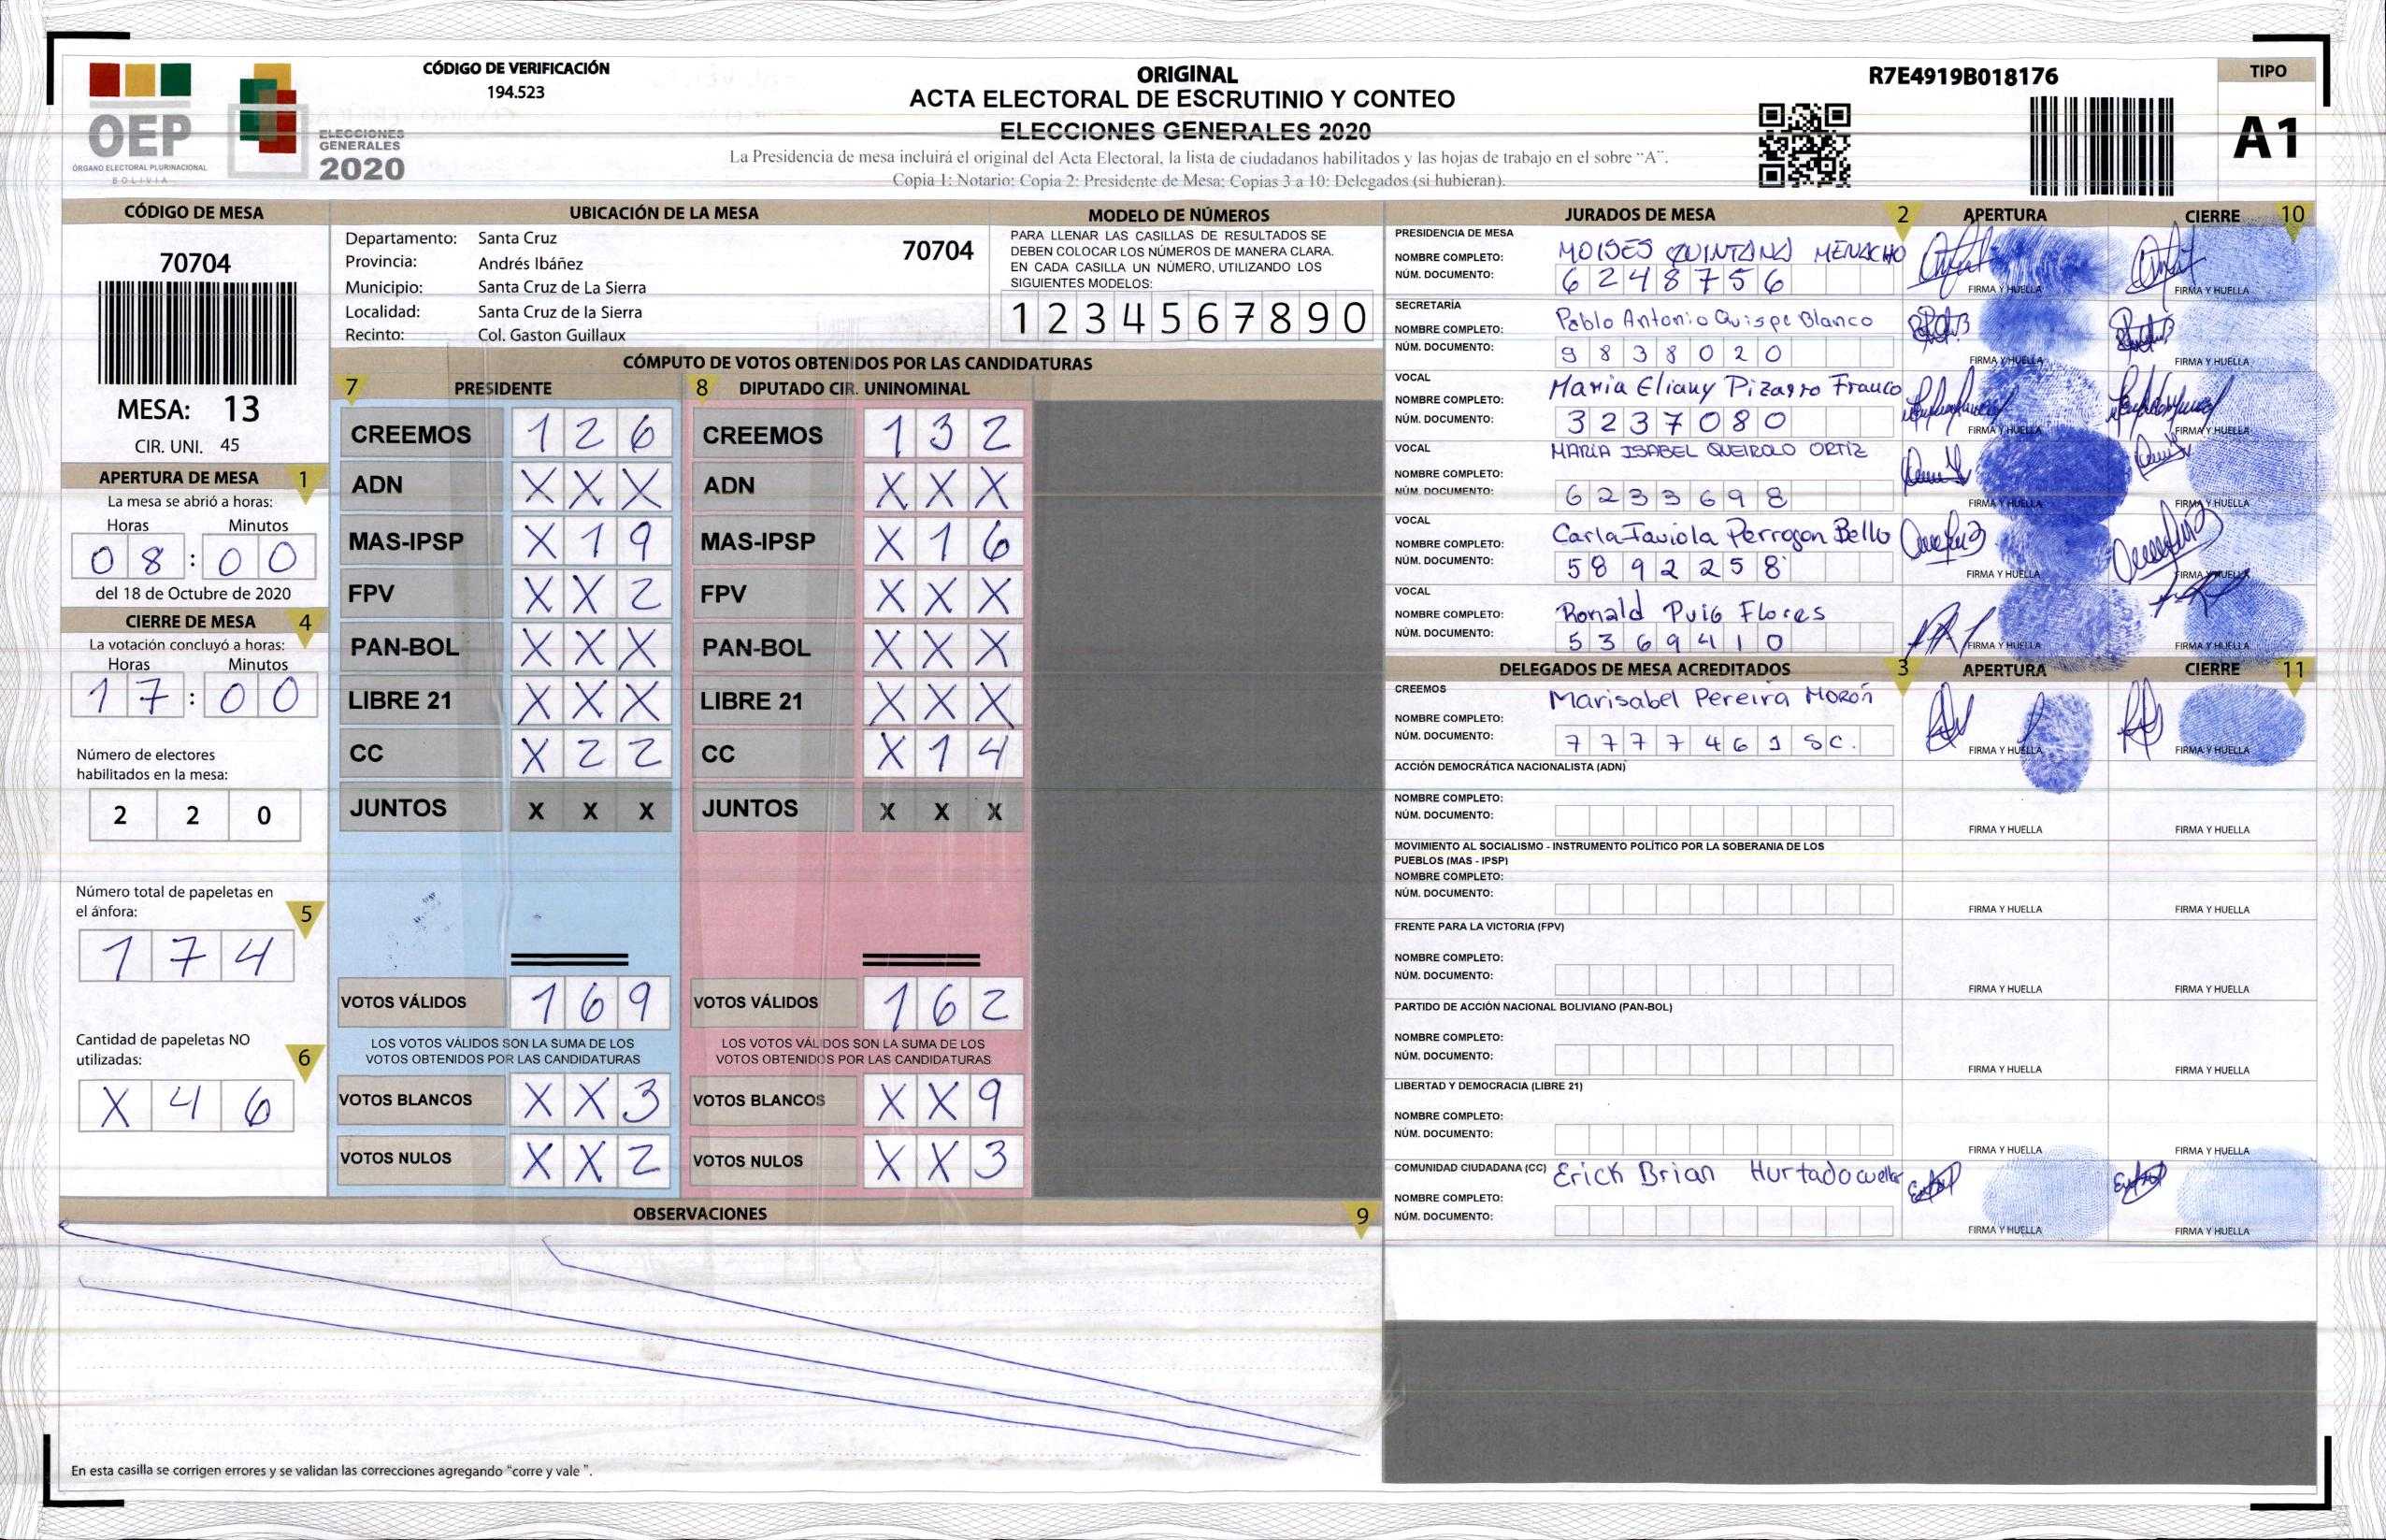 CÓDIGO DE VERIFICACIÓN
194.523
OEP
ÓRGANO ELECTORAL PLURINACIONAL
BOLIVIA
ELECCIONES
GENERALES
2020
ORIGINAL
ACTA ELECTORAL DE ESCRUTINIO Y CONTEO
ELECCIONES GENERALES 2020
La Presidencia de mesa incluirá el original del Acta Electoral, la lista de ciudadanos habilitados y las hojas de trabajo en el sobre "A".
Copia 1: Notario; Copia 2: Presidente de Mesa; Copias 3 a 10: Delegados (si hubieran).
R7E4919B018176
TIPO
A1
CÓDIGO DE MESA
70704
MESA: 13
CIR. UNI. 45
APERTURA DE MESA 1
La mesa se abrió a horas:
Horas Minutos
08:00
del 18 de Octubre de 2020
CIERRE DE MESA 4
La votación concluyó a horas:
Horas Minutos
17:00
Número de electores
habilitados en la mesa:
2 2 0
Número total de papeletas en
el ánfora:
5
1 7 4
Cantidad de papeletas NO
utilizadas:
6
X 4 6
UBICACIÓN DE LA MESA
Departamento: Santa Cruz
70704
Provincia: Andrés Ibáñez
Municipio: Santa Cruz de La Sierra
Localidad: Santa Cruz de la Sierra
Recinto: Col. Gaston Guillaux
MODELO DE NÚMEROS
PARA LLENAR LAS CASILLAS DE RESULTADOS SE
DEBEN COLOCAR LOS NÚMEROS DE MANERA CLARA.
EN CADA CASILLA UN NÚMERO, UTILIZANDO LOS
SIGUIENTES MODELOS:
1 2 3 4 5 6 7 8 9 0
CÓMPUTO DE VOTOS OBTENIDOS POR LAS CANDIDATURAS
7 PRESIDENTE
CREEMOS 1 2 6
ADN X X X
MAS-IPSP X 1 9
FPV X X 2
PAN-BOL X X X
LIBRE 21 X X X
CC X 2 2
JUNTOS X X X
VOTOS VÁLIDOS 1 6 9
LOS VOTOS VÁLIDOS SON LA SUMA DE LOS
VOTOS OBTENIDOS POR LAS CANDIDATURAS
VOTOS BLANCOS X X 3
VOTOS NULOS X X 2
8 DIPUTADO CIR. UNINOMINAL
CREEMOS 1 3 2
ADN X X X
MAS-IPSP X 1 6
FPV X X X
PAN-BOL X X X
LIBRE 21 X X X
CC X 1 4
JUNTOS X X X
VOTOS VÁLIDOS 1 6 2
LOS VOTOS VÁLIDOS SON LA SUMA DE LOS
VOTOS OBTENIDOS POR LAS CANDIDATURAS
VOTOS BLANCOS X X 9
VOTOS NULOS X X 3
OBSERVACIONES 9
En esta casilla se corrigen errores y se validan las correcciones agregando "corre y vale ".
JURADOS DE MESA 2 APERTURA CIERRE 10
PRESIDENCIA DE MESA
NOMBRE COMPLETO: MOISES QUINTANA MENACHO
NÚM. DOCUMENTO: 6248756
FIRMA Y HUELLA FIRMA Y HUELLA
SECRETARÍA
NOMBRE COMPLETO: Pablo Antonio Quispe Blanco
NÚM. DOCUMENTO: 9838020
FIRMA Y HUELLA FIRMA Y HUELLA
VOCAL
NOMBRE COMPLETO: Maria Eliany Pizarro Franco
NÚM. DOCUMENTO: 3237080
FIRMA Y HUELLA FIRMA Y HUELLA
VOCAL MARIA ISABEL QUEIROLO ORTIZ
NOMBRE COMPLETO:
NÚM. DOCUMENTO: 6233698
FIRMA Y HUELLA FIRMA Y HUELLA
VOCAL
NOMBRE COMPLETO: Carla Faviola Perrogon Bello
NÚM. DOCUMENTO: 5892258
FIRMA Y HUELLA FIRMA Y HUELLA
VOCAL
NOMBRE COMPLETO: Ronald Puig Flores
NÚM. DOCUMENTO: 5369410
FIRMA Y HUELLA FIRMA Y HUELLA
DELEGADOS DE MESA ACREDITADOS 3 APERTURA CIERRE 11
CREEMOS Marisabel Pereira Morón
NOMBRE COMPLETO:
NÚM. DOCUMENTO: 7777461 SC.
FIRMA Y HUELLA FIRMA Y HUELLA
ACCIÓN DEMOCRÁTICA NACIONALISTA (ADN)
NOMBRE COMPLETO:
NÚM. DOCUMENTO:
FIRMA Y HUELLA FIRMA Y HUELLA
MOVIMIENTO AL SOCIALISMO - INSTRUMENTO POLÍTICO POR LA SOBERANIA DE LOS
PUEBLOS (MAS - IPSP)
NOMBRE COMPLETO:
NÚM. DOCUMENTO:
FIRMA Y HUELLA FIRMA Y HUELLA
FRENTE PARA LA VICTORIA (FPV)
NOMBRE COMPLETO:
NÚM. DOCUMENTO:
FIRMA Y HUELLA FIRMA Y HUELLA
PARTIDO DE ACCIÓN NACIONAL BOLIVIANO (PAN-BOL)
NOMBRE COMPLETO:
NÚM. DOCUMENTO:
FIRMA Y HUELLA FIRMA Y HUELLA
LIBERTAD Y DEMOCRACIA (LIBRE 21)
NOMBRE COMPLETO:
NÚM. DOCUMENTO:
FIRMA Y HUELLA FIRMA Y HUELLA
COMUNIDAD CIUDADANA (CC) Erick Brian Hurtado cuellar
NOMBRE COMPLETO:
NÚM. DOCUMENTO:
FIRMA Y HUELLA FIRMA Y HUELLA